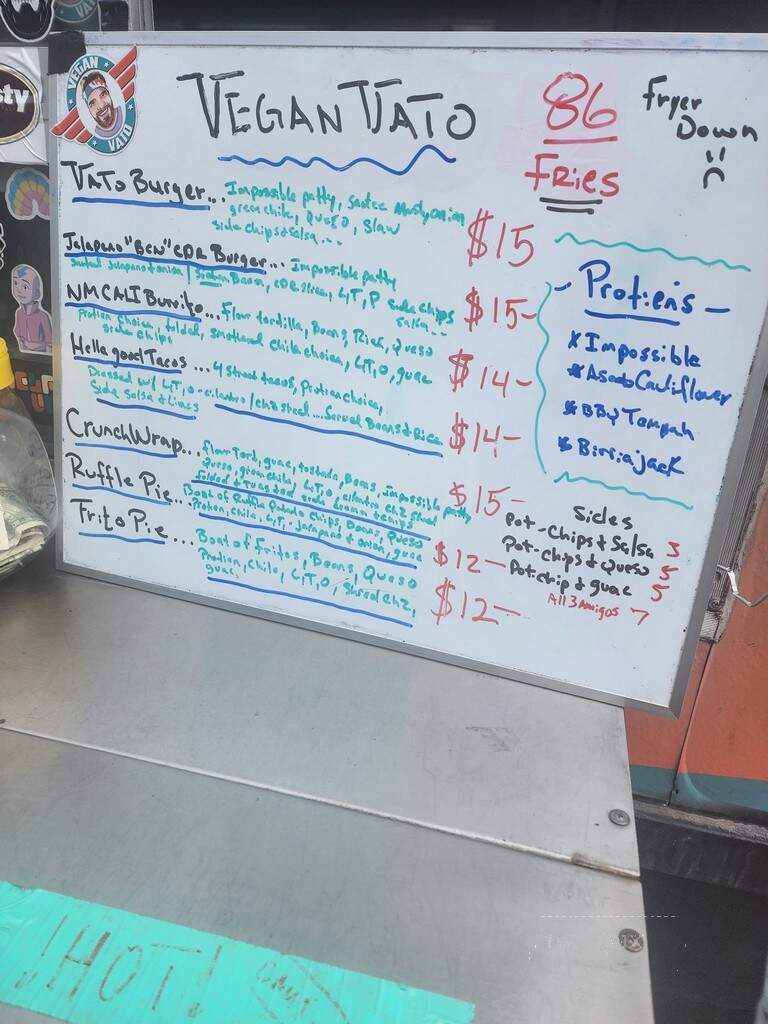 VEGAN
VATO
sty
VEGAN VATO
86
Fries
Fryer
Down
VATO Burger... Impossible patty, onion
green chile, Queso, Slaw
side chips & salsa...
$15
Jalapeno "BCN" CDR Burger... Impossible patty
Jalapeno & onion / Bacon, CDR slice, L, T, P side chips
salsa..
$15-
NMCALI Burrito... Flour tortilla, Beans, Rice, Queso
Protien choice, folded, smothered chile choice, L,T,O, guac
side chips
$14-
Hella good Tacos ... 4 street tacos, Protien choice,
Dressed w/ L,T,O - cilantro / chz shred .... Served Beans & Rice
Side Salsa & Limes
$14-
CrunchWrap... flour Tort, guac, tostada, Beans, Impossible patty
Queso, green chile, L,T,O, cilantro chz shred
folded & Toasted side chips
$15-
Ruffle Pie... Boat of Ruffle Potato Chips, Beans, Queso
Protien, chile, L,T,- Jalapeno & onion, guac
$12-
Frito Pie ... Boat of Fritos, Beans, Queso
Protien, Chile, L,T,O, Shred chz,
guac,
$12-
- Protiens -
* Impossible
* Asada Cauliflower
* BBQ Tempah
* Birriajack
Sides
Pot-Chips & Salsa 3
Pot-chips & Queso 5
Pot-chip & guac 5
All 3 Amigos 7
HOT!